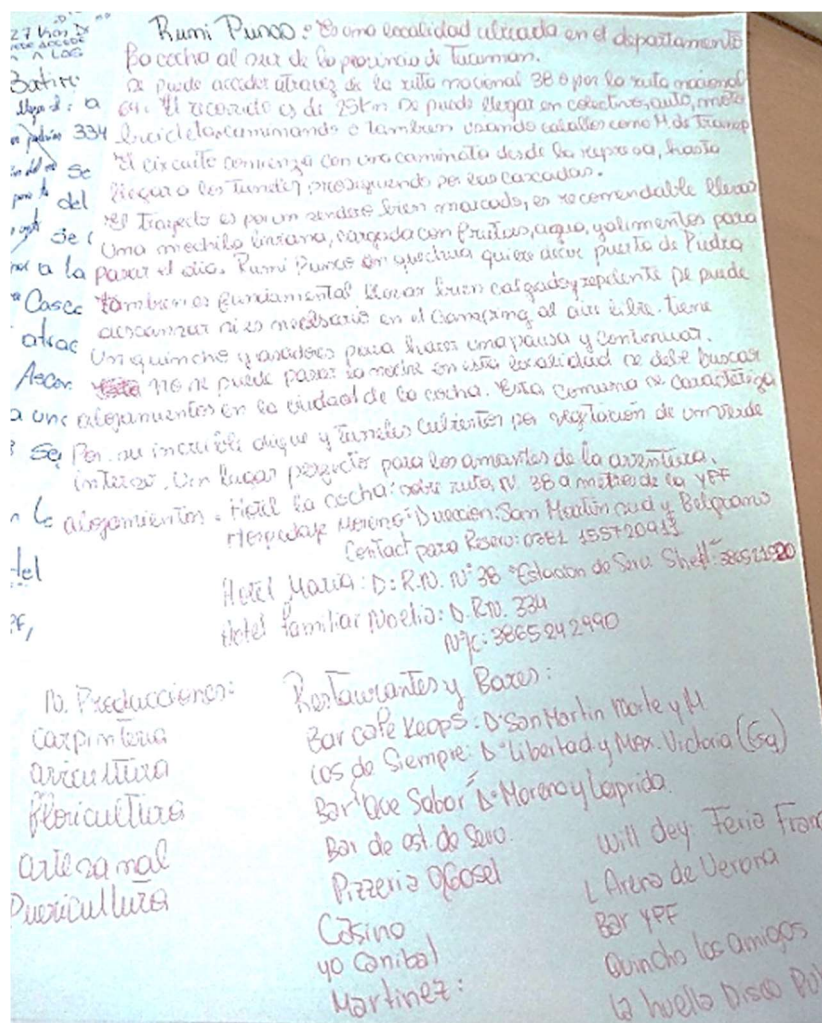 Rumi Punco: Es una localidad ubicada en el departamento
la cocha al sur de la provincia de Tucuman.
Se puede acceder atravez de la ruta nacional 38 o por la ruta nacional
64. El recorrido es de 25km Se puede llegar en colectivos, auto, moto
bicicleta, caminando o tambien usando caballos como M. de Transp
El circuito comienza con una caminata desde la represa, hasta
llegar a los Tuneles prosiguiendo por las cascadas.
El trayecto es por un sendero bien marcado, es recomendable llevar
Una mochila liviana, cargada con frutas, agua, y alimentos para
pasar el dia. Rumi Punco en quechua quiere decir puerta de Piedra
tambien es fundamental llevar buen calzado y repelente se puede
descanzar si es necesario en el Camping al aire libre. tiene
Un quincho y asadores para hacer una pausa y continuar.
no se puede pasar la noche en esta localidad se debe buscar
alojamientos en la ciudad de la cocha. Esta Comuna se caracteriza
Por su increible dique y Tuneles Cubiertos por vegetación de un verde
intenso. Un lugar perfecto para los amantes de la aventura.
alojamientos. Hotel la cocha: sobre ruta, N. 38 a metros de la YPF
Hospedaje Moreno: Direccion: San Martin sud y Belgrano
Contact para Reserv: 0381 155720911
Hotel Maria: D: R.N. N° 38 "Estacion de Serv. Shell"
Hotel familiar Noelia: D. R.N. 334
N/c: 3865242990
N. Producciones:
carpinteria
avicultura
floricultura
artesanal
Puericultura
Restaurantes y Bares:
Bar café Keops: D: San Martin Norte y M.
Los de Siempre: D: Libertad y Mox. Victoria (Esq)
Bar "Que Sabor" D: Moreno y Laprida.
Bar de est. de Serv.
Pizzeria
Casino
yo Canibal
Martinez:
Will dey: Feria Fran
L Arena de Verona
Bar YPF
Quincho los amigos
La huella Disco
27 Km
A LOS
334
Se
del
Se
a la
Casca
atrac
a una
Se